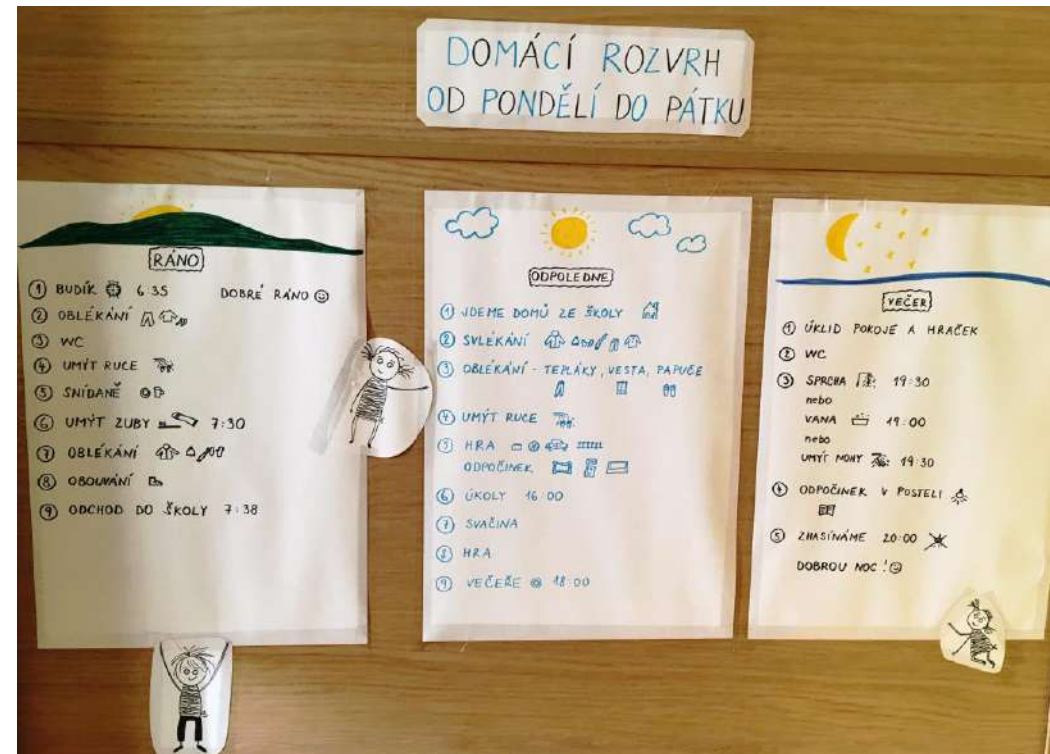 DOMÁCÍ ROZVRH
OD PONDĚLÍ DO PÁTKU
RÁNO
① BUDÍK 6:35 DOBRÉ RÁNO
② OBLÉKÁNÍ
③ WC
④ UMÝT RUCE
⑤ SNÍDANĚ
⑥ UMÝT ZUBY 7:30
⑦ OBLÉKÁNÍ
⑧ OBOUVÁNÍ
⑨ ODCHOD DO ŠKOLY 7:38
ODPOLEDNE
① JDEME DOMŮ ZE ŠKOLY
② SVLÉKÁNÍ
③ OBLÉKÁNÍ - TEPLÁKY, VESTA, PAPUČE
④ UMÝT RUCE
⑤ HRA
ODPOČINEK
⑥ ÚKOLY 16:00
⑦ SVAČINA
⑧ HRA
⑨ VEČEŘE 18:00
VEČER
① ÚKLID POKOJE A HRAČEK
② WC
③ SPRCHA 19:30
nebo
VANA 19:00
nebo
UMÝT NOHY 19:30
④ ODPOČINEK V POSTELI
⑤ ZHASÍNÁME 20:00
DOBROU NOC!